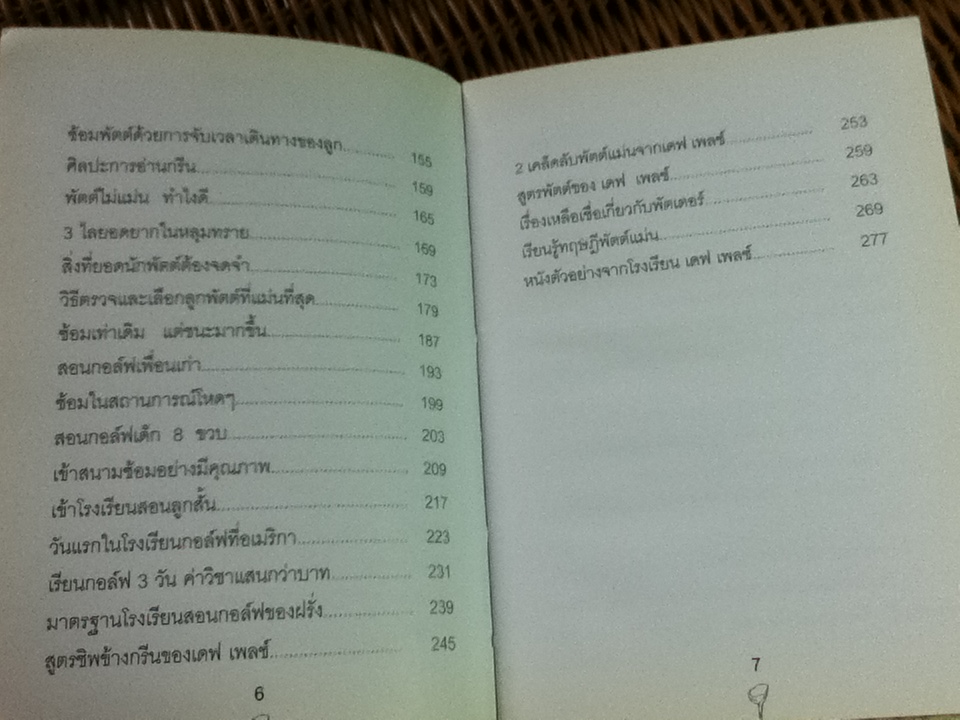 ซ้อมพัตต์ด้วยการจับเวลาเดินทางของลูก 155
ศิลปะการอ่านกรีน 159
พัตต์ไม่แม่น ทำไงดี 165
3 ไลยอดยากในหลุมทราย 169
สิ่งที่ยอดนักพัตต์ต้องจดจำ 173
วิธีตรวจและเลือกลูกพัตต์ที่แม่นที่สุด 179
ซ้อมเท่าเดิม แต่ชนะมากขึ้น 187
สอนกอล์ฟเพื่อนเก่า 193
ซ้อมในสถานการณ์โหดๆ 199
สอนกอล์ฟเด็ก 8 ขวบ 203
เข้าสนามซ้อมอย่างมีคุณภาพ 209
เข้าโรงเรียนสอนลูกสั้น 217
วันแรกในโรงเรียนกอล์ฟที่อเมริกา 223
เรียนกอล์ฟ 3 วัน ค่าวิชาแสนกว่าบาท 231
มาตรฐานโรงเรียนสอนกอล์ฟของฝรั่ง 239
สูตรชิพข้างกรีนของเดฟ เพลซ์ 245
6
2 เคล็ดลับพัตต์แม่นจากเดฟ เพลซ์ 253
สูตรพัตต์ของ เดฟ เพลซ์ 259
เรื่องเหลือเชื่อเกี่ยวกับพัตเตอร์ 263
เรียนรู้ทฤษฎีพัตต์แม่น 269
หนังตัวอย่างจากโรงเรียน เดฟ เพลซ์ 277
7